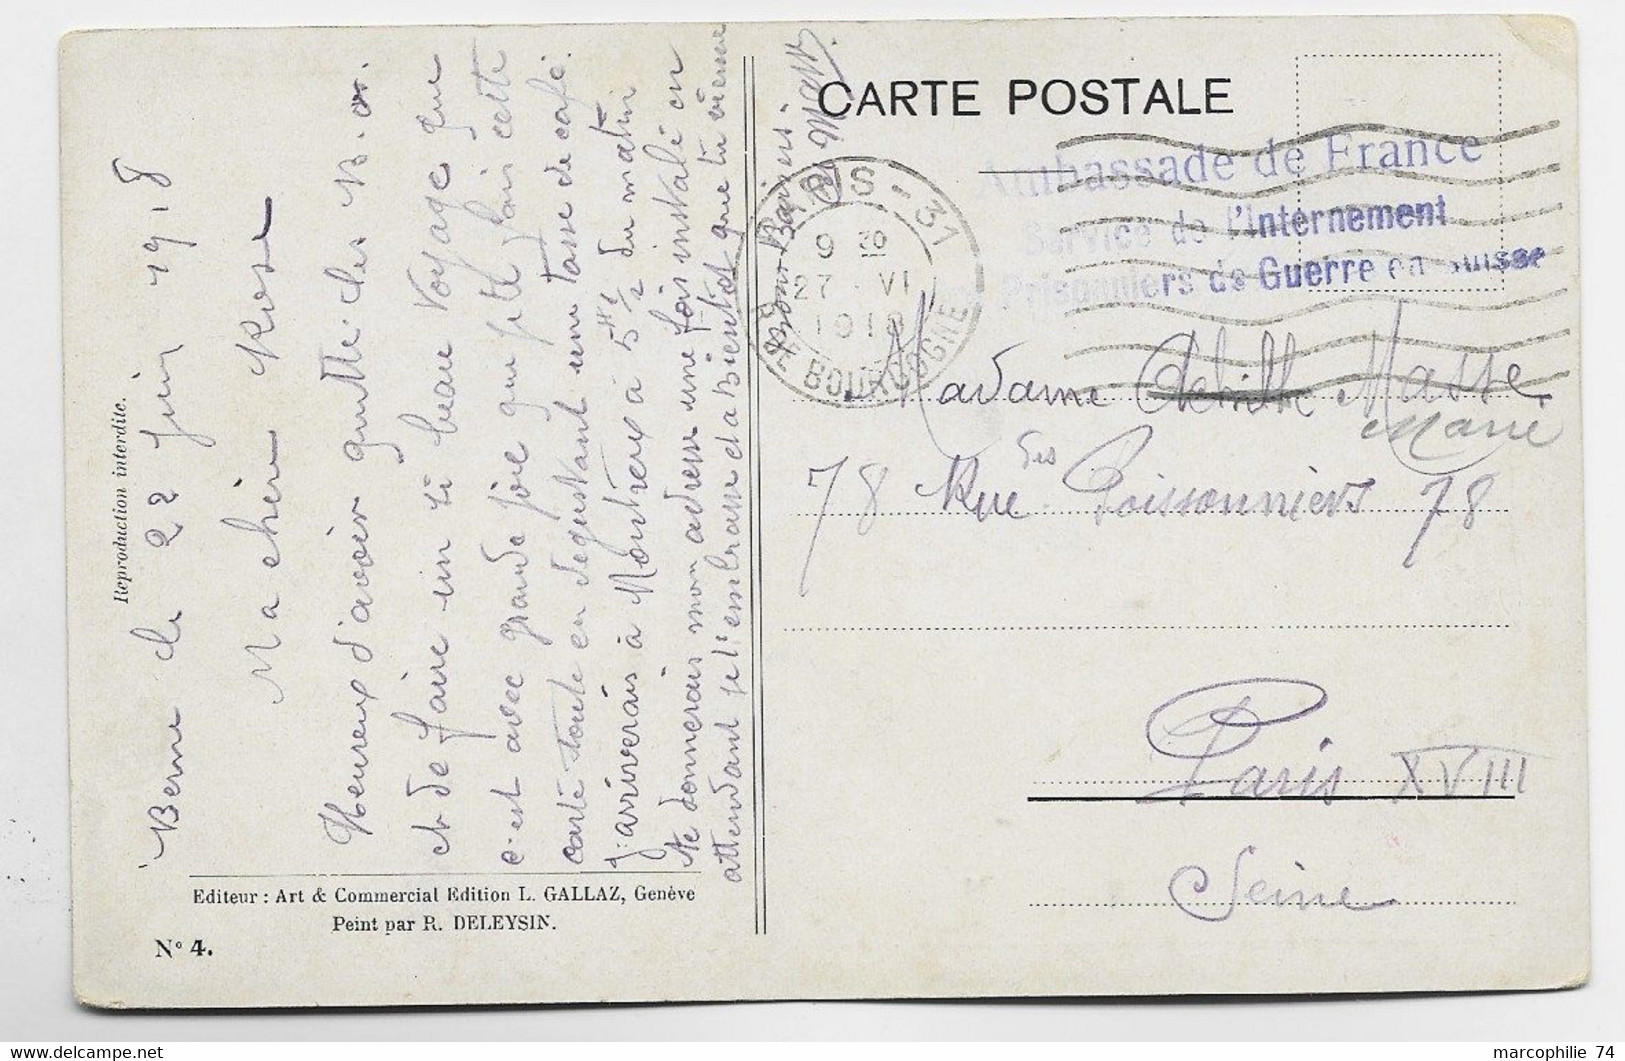 Berne le 22 Juin 1918
Ma chère Rose
Heureux d'avoir quitté les B.
et de faire un si beau voyage que
c'est avec grande joie que je te fais cette
carte toute en dégustant une tasse de café.
J'ariverais à Montreux à 5 H 1/2 du matin
Te donnerais mon adresse une fois installé en
attendant je t'embrasse et a Bientot que tu vienne
Bons Baisers.
Reproduction interdite.
Editeur : Art & Commercial Edition L. GALLAZ, Genève
Peint par R. DELEYSIN.
N° 4.
CARTE POSTALE
Ambassade de France
Service de l'Internement
Prisonniers de Guerre en Suisse
PARIS - 31
9 30
27 VI
1918
DE BOURGOGNE
Madame Achille Masse
Marie
78 Rue des Poissonniers 78
Paris XVIII
Seine
marcophilie 74